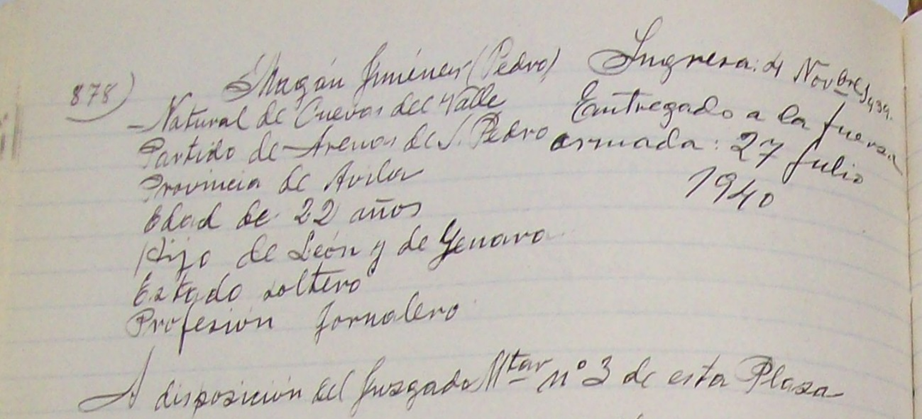 878) Magán Jiménez (Pedro)
Ingresa: 4 Novbre 1939.
- Natural de Cuevas del Valle
Entregado a la fuerza
Partido de Arenas de S. Pedro
armada: 27 Julio
Provincia de Avila
1940
Edad de 22 años
Hijo de León y de Genara
Estado soltero
Profesión Jornalero
A disposición del Juzgado Mtar nº 3 de esta Plaza